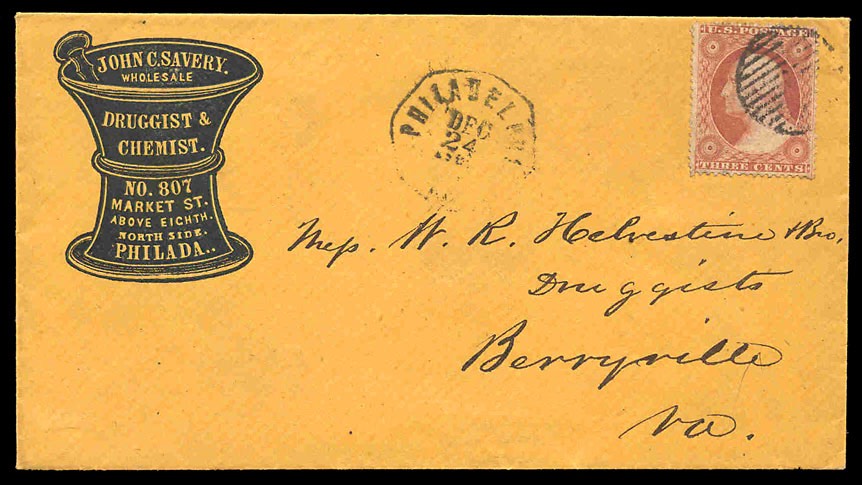 JOHN C. SAVERY.
WHOLESALE
DRUGGIST &
CHEMIST.
NO. 807
MARKET ST.
ABOVE EIGHTH.
NORTH SIDE.
PHILADA..
PHILADELPHI
DEC
24
U.S. POSTAGE
THREE CENTS
Mess. W. R. Helvestine & Bro.
Druggists
Berryville
Va.